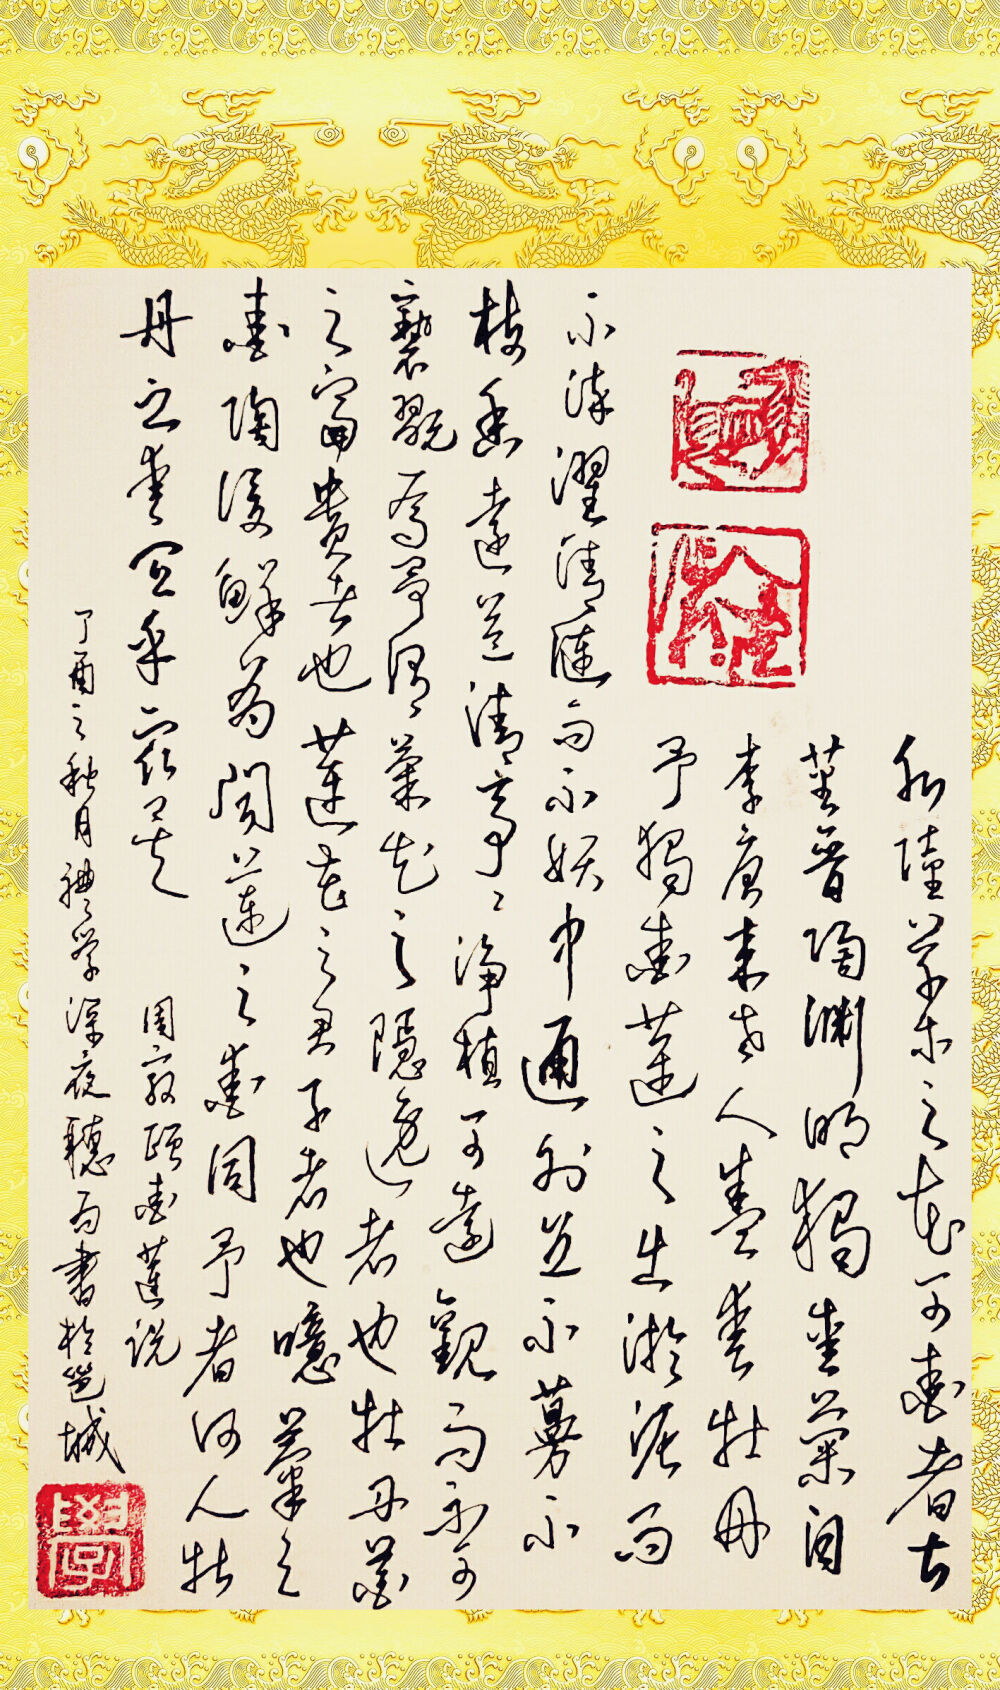 水陸草木之花可愛者甚
蕃晉陶渊明獨愛菊自
李唐来世人盛爱牡丹
予獨愛蓮之出淤泥而
不染濯清漣而不妖中通外直不蔓不
枝香遠益清亭〻淨植可遠觀而不可
褻翫焉予謂菊花之隱逸者也牡丹花
之富貴者也蓮花之君子者也噫菊之
愛陶後鮮有聞蓮之愛同予者何人牡
丹之爱宜乎眾矣
周敦頤愛蓮说
丁酉之秋月禮学深夜聽雨書於邕城